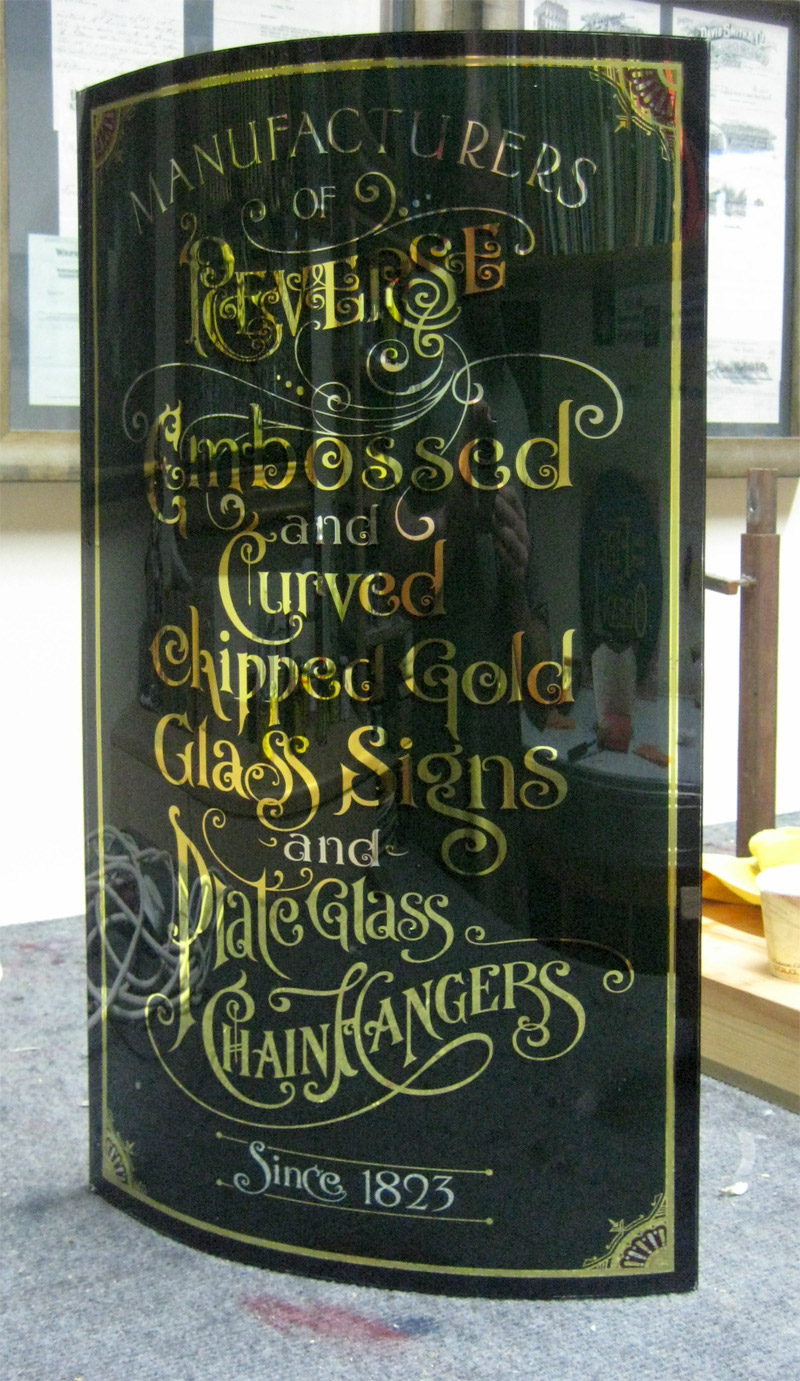 MANUFACTURERS
OF
REVERSE
Embossed
and
Curved
Chipped Gold
Glass Signs
and
Plate Glass
CHAIN HANGERS
Since 1823